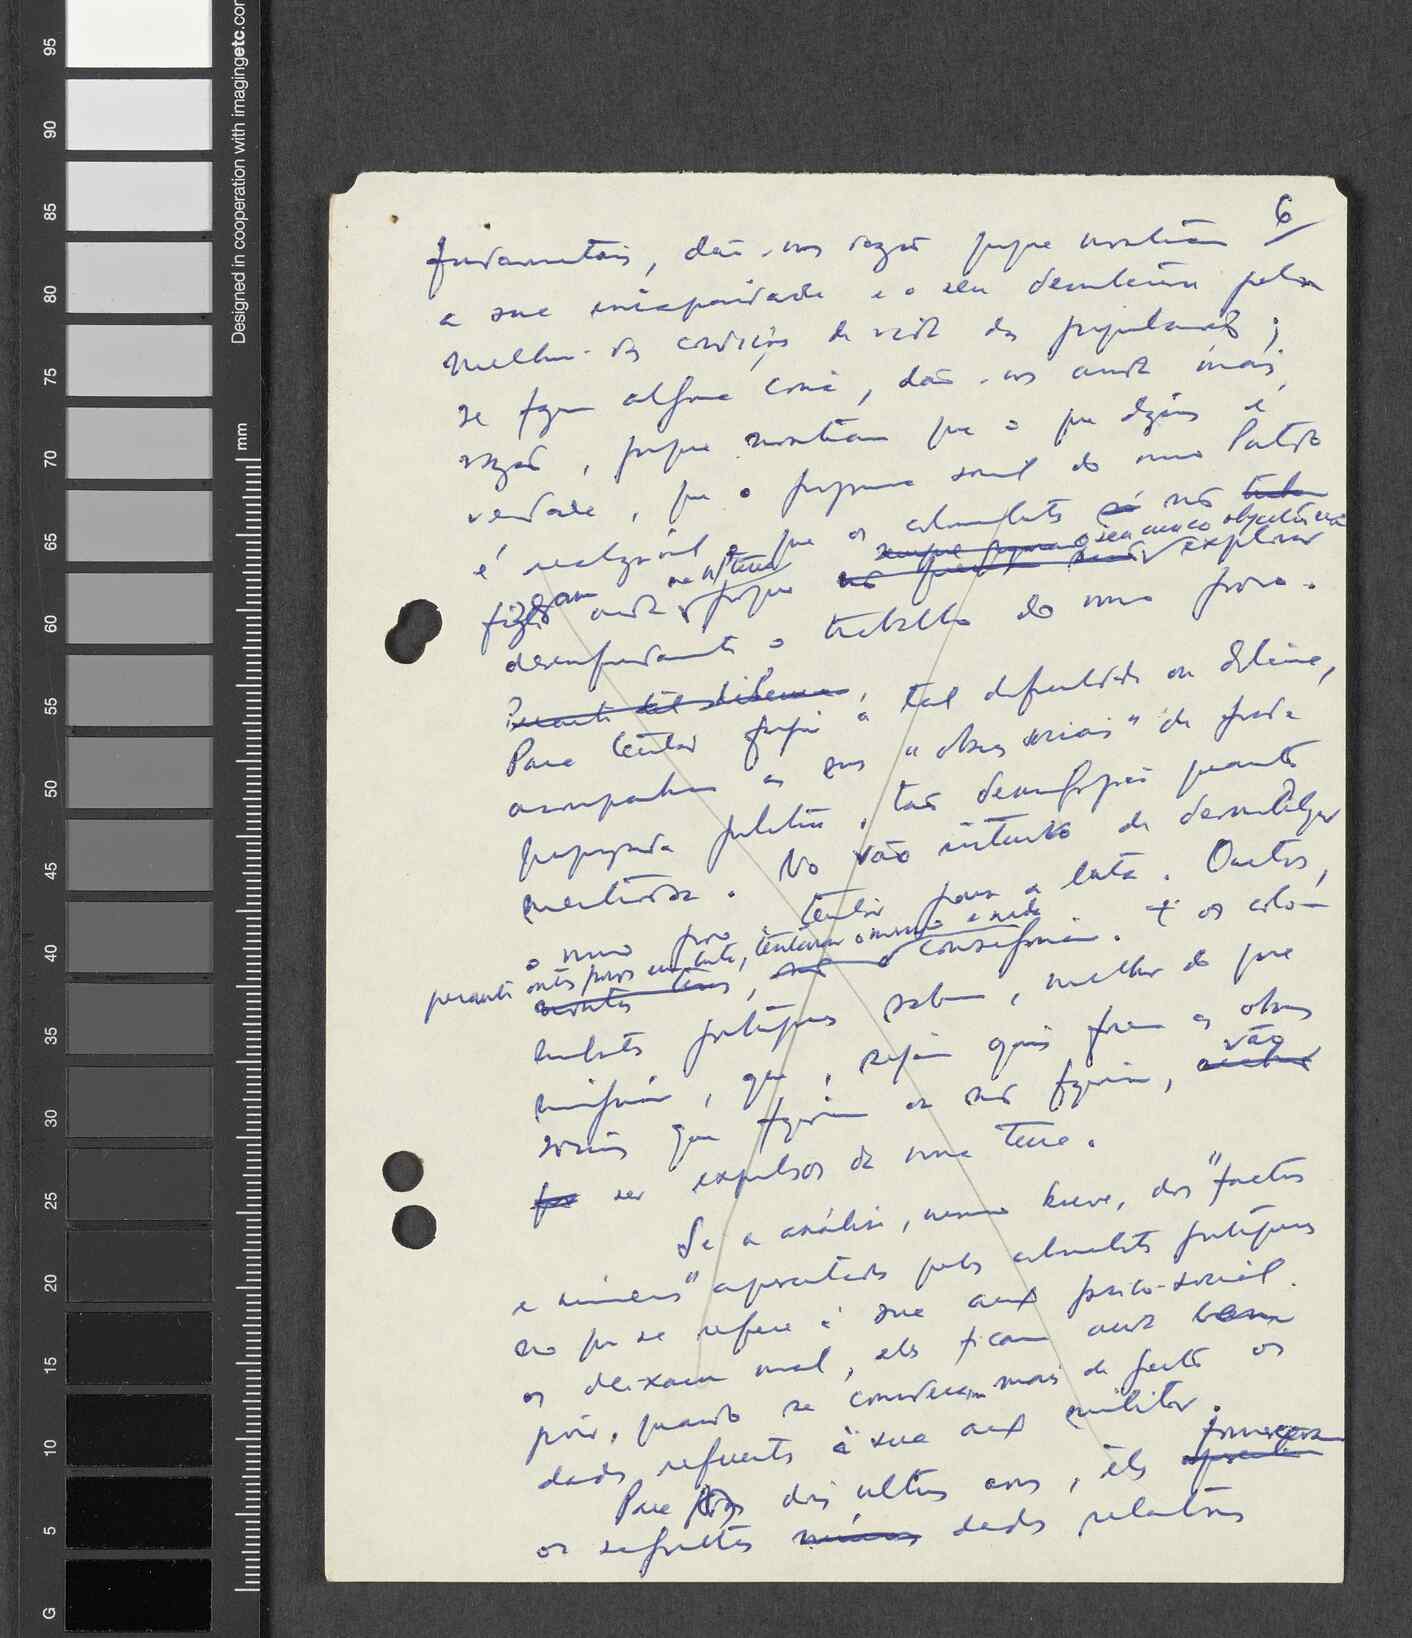 6
fundamentais, dão-nos razão porque mostram
a sua incapacidade e o seu desinteresse pela
melhoria das condições de vida das populações;
se fazem alguma coisa, dão-nos ainda mais
razão, porque mostram que o que dizíamos é
verdade, que o programa social do nosso Partido
é realizável e que os colonialistas só não tinham
sempre o seu único objectivo era
fizeram ainda na n/ terra porque explorar
desenfreadamente o trabalho do nosso povo.
Perante tal dilema,
Para tentar fugir a tal dificuldade ou dilema,
acompanham as suas "obras sociais" de
propaganda tão quanto
mentirosa. No vão intuito de desmobilizar
o nosso povo, tentar parar a luta. Outros,
perante outros povos em luta, tentaram o mesmo e nada
conseguiram. E os colo-
nialistas portugueses sabem, melhor do que
ninguém, que, sejam quais forem as obras
sociais que fizeram ou não fizeram, vão
ser expulsos da nossa terra.
Se a análise, mesmo breve, dos "factos
e números" apresentados pelos colonialistas portugueses
no que se refere à sua acção psico-social
os deixam mal, eles ficam ainda bem
pior, quando se consideram mais de perto os
dados referentes à sua acção militar.
Para os dois últimos anos, eles forneceram
os seguintes dados relativos
Designed in cooperation with imagingetc.com
mm
95
90
85
80
75
70
65
60
55
50
45
40
35
30
25
20
15
10
5
G